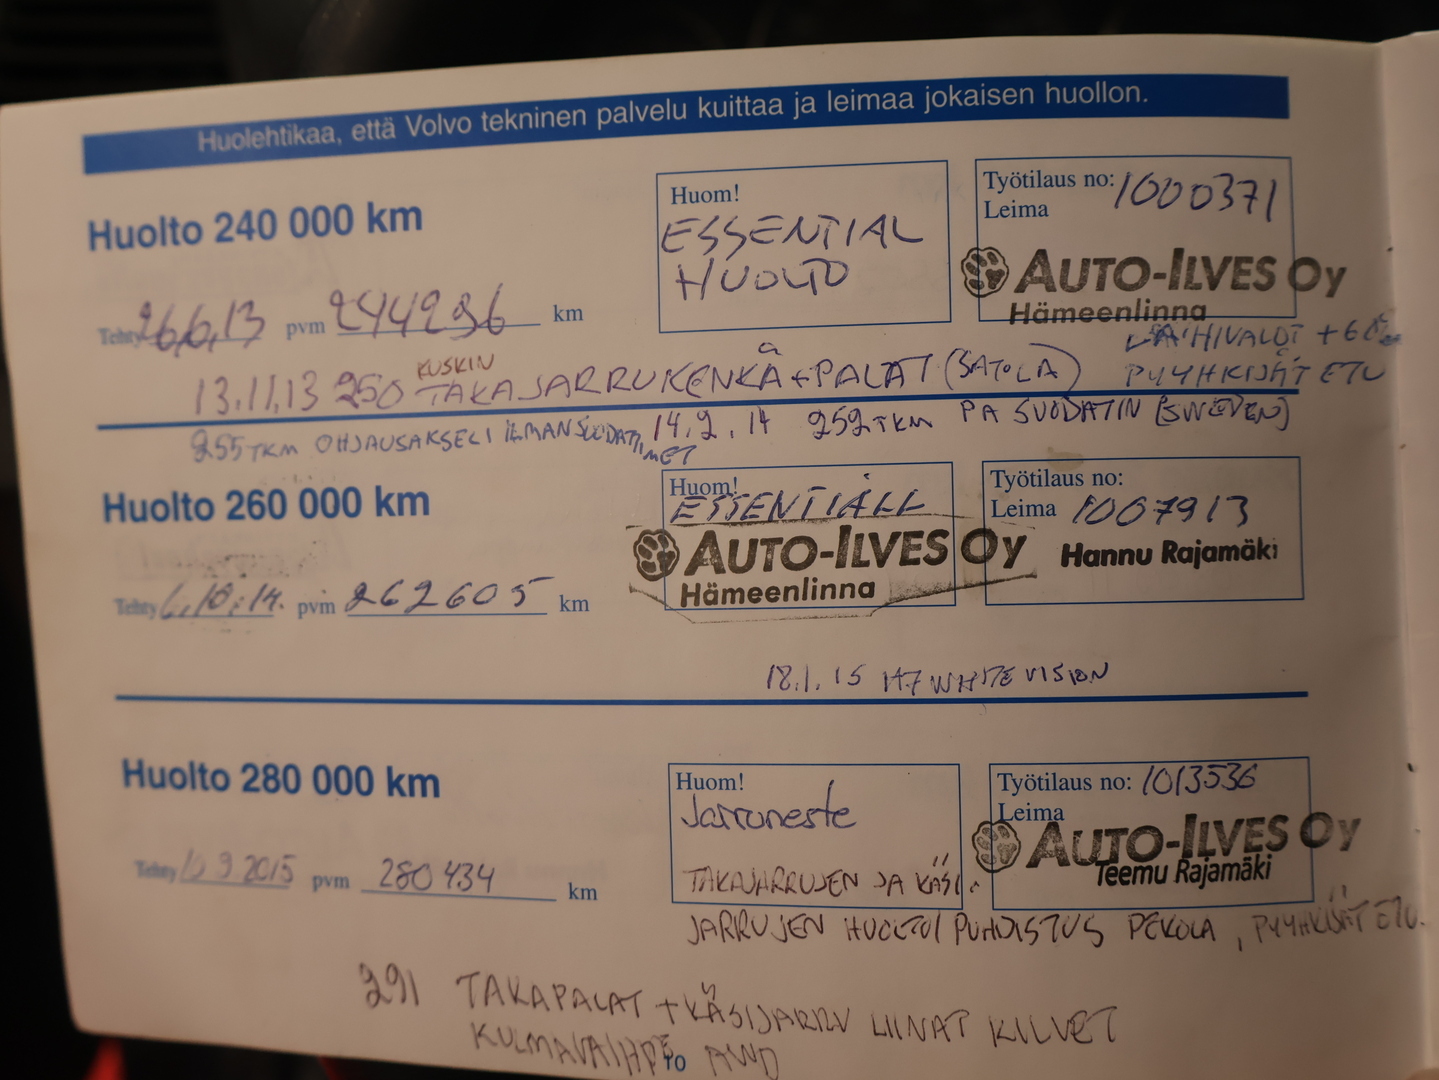 Huolehtikaa, että Volvo tekninen palvelu kuittaa ja leimaa jokaisen huollon.
Huolto 240 000 km
Tehty 26.6.13 pvm 244296 km
Huom!
ESSENTIAL
HUOLTO
Työtilaus no: 1000371
Leima
AUTO-ILVES Oy
Hämeenlinna
LÄHIVALOT + 60%
PYYHKIJÄT ETU
KUSKIN
13.11.13 250 TAKAJARRUKENKÄ + PALAT (SATOLA)
14.2.14 252TKM PA SUODATIN (SWEDEN)
255TKM OHJAUSAKSELI ILMANSUODATTIMET
Huolto 260 000 km
Tehty 6.10.14. pvm 262605 km
Huom!
ESSENTIALL
AUTO-ILVES Oy
Hämeenlinna
Työtilaus no:
Leima 1007913
Hannu Rajamäki
18.1.15 H7 WHITE VISION
Huolto 280 000 km
Tehty 10 9 2015 pvm 280 434 km
Huom!
Jarruneste
TAKAJARRUJEN JA KÄSI.
JARRUJEN HUOLTO/PUHDISTUS PEKOLA, PYYHKIJÄT ETU.
Työtilaus no: 1013536
Leima
AUTO-ILVES Oy
Teemu Rajamäki
291 TAKAPALAT + KÄSIJARRU LIINAT KILVET
KULMAVAIHDE AWD
10